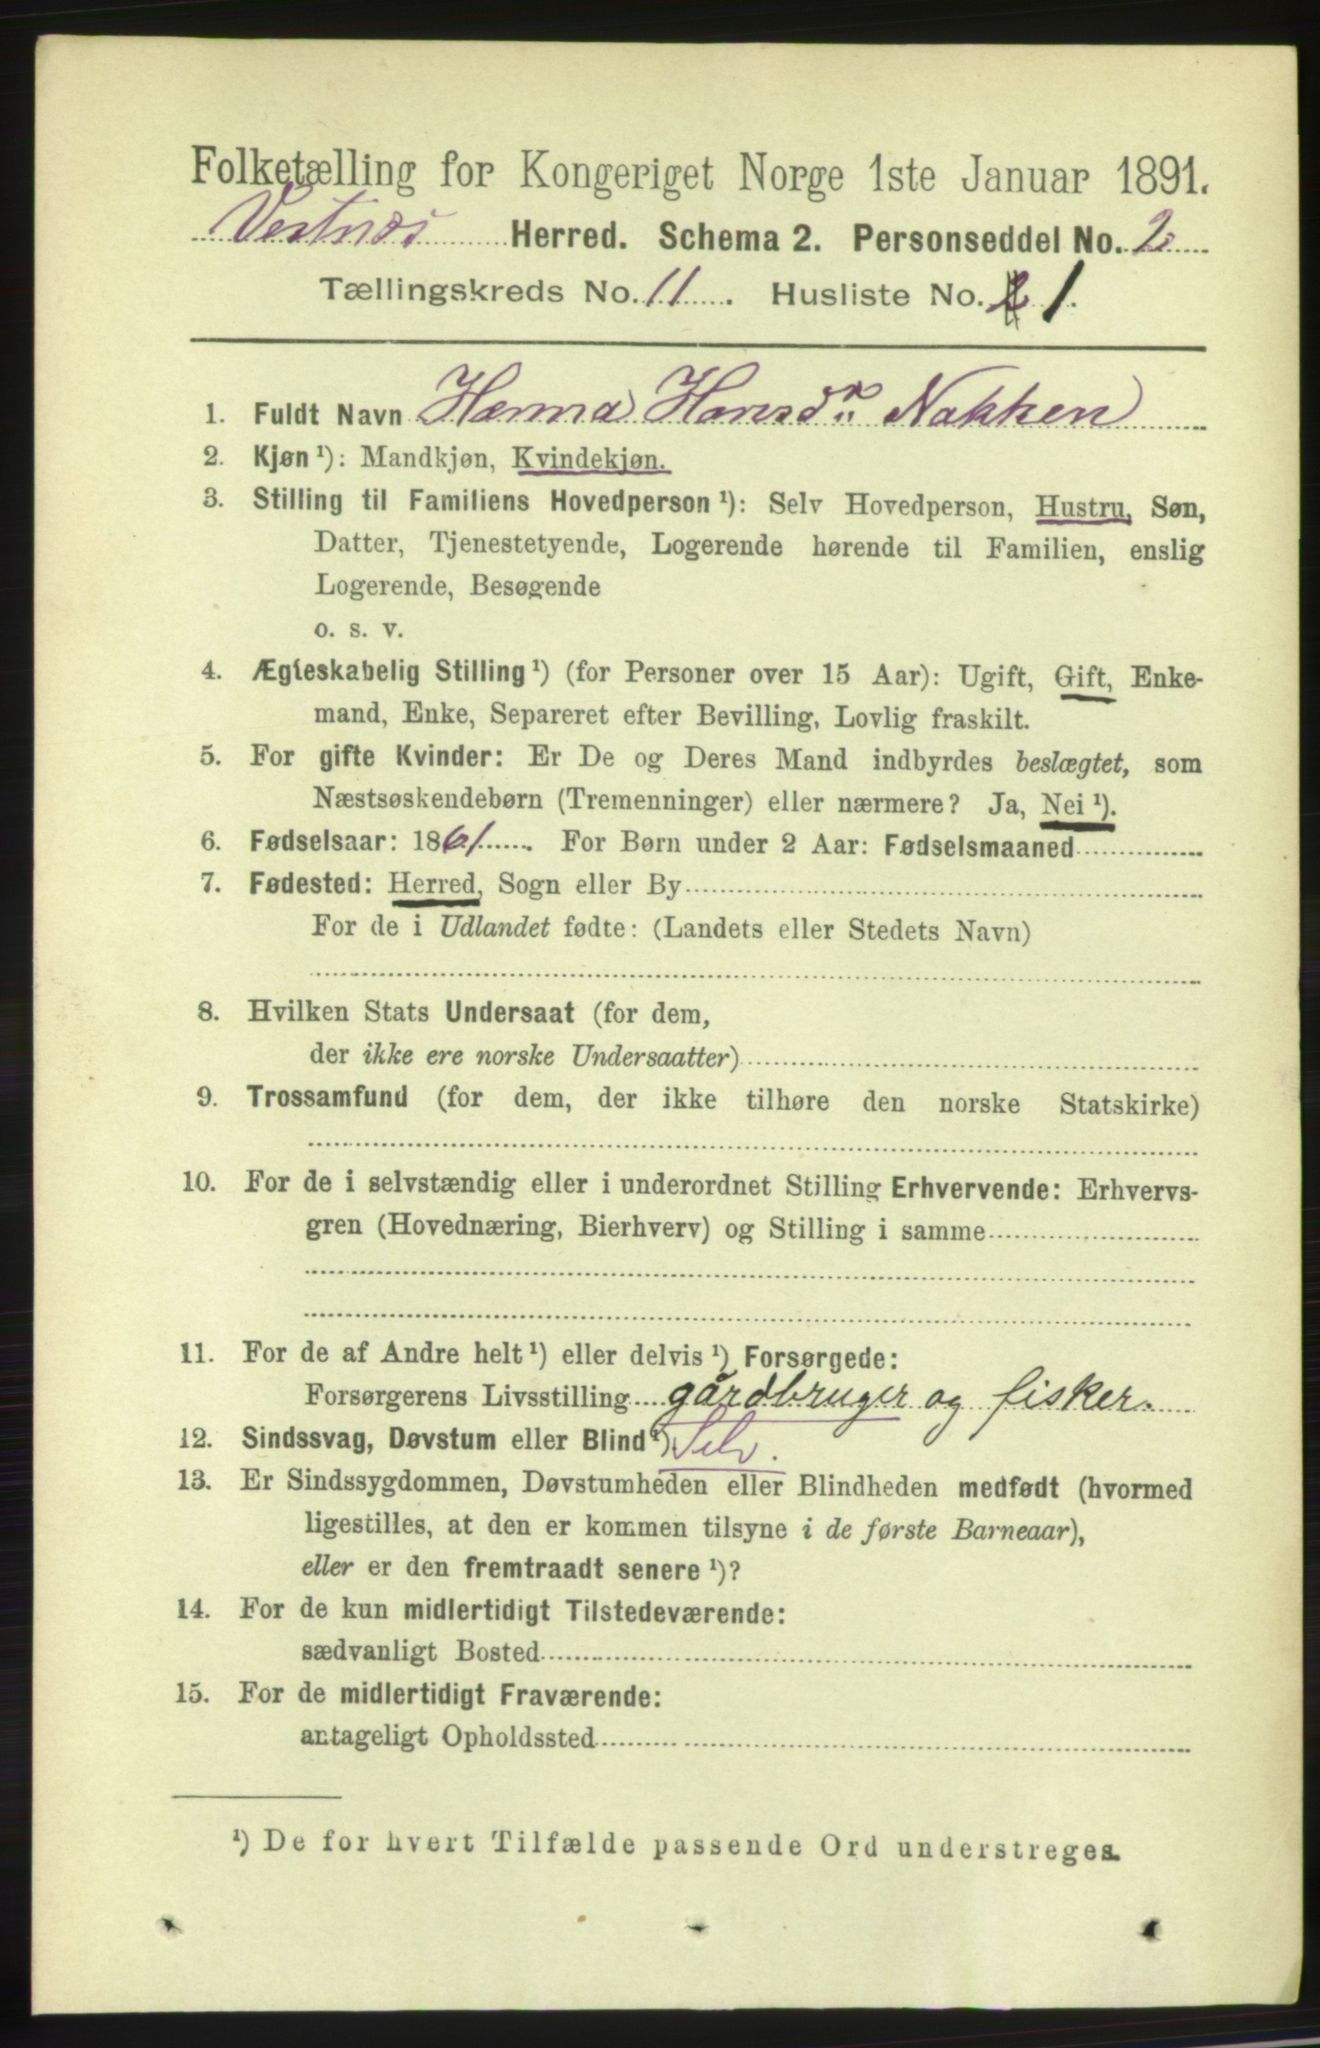 Folketælling for Kongeriget Norge 1ste Januar 1891.
Vestnæs Herred. Schema 2. Personseddel No. 2
Tællingskreds No. 11. Husliste No. 1.
1. Fuldt Navn Hanna Hansdr. Nakken
2. Kjøn¹): Mandkjøn, Kvindekjøn.
3. Stilling til Familiens Hovedperson¹): Selv Hovedperson, Hustru, Søn,
Datter, Tjenestetyende, Logerende hørende til Familien, enslig
Logerende, Besøgende
o. s. v.
4. Ægteskabelig Stilling¹) (for Personer over 15 Aar): Ugift, Gift, Enke-
mand, Enke, Separeret efter Bevilling, Lovlig fraskilt.
5. For gifte Kvinder: Er De og Deres Mand indbyrdes beslægtet, som
Næstsøskendebørn (Tremenninger) eller nærmere? Ja, Nei¹).
6. Fødselsaar: 1861. For Børn under 2 Aar: Fødselsmaaned
7. Fødested: Herred, Sogn eller By
For de i Udlandet fødte: (Landets eller Stedets Navn)
8. Hvilken Stats Undersaat (for dem,
der ikke ere norske Undersaatter)
9. Trossamfund (for dem, der ikke tilhøre den norske Statskirke)
10. For de i selvstændig eller i underordnet Stilling Erhvervende: Erhvervs-
gren (Hovednæring, Bierhverv) og Stilling i samme
11. For de af Andre helt¹) eller delvis¹) Forsørgede:
Forsørgerens Livsstilling gårdbruger og fisker.
12. Sindssvag, Døvstum eller Blind¹) Selv.
13. Er Sindssygdommen, Døvstumheden eller Blindheden medfødt (hvormed
ligestilles, at den er kommen tilsyne i de første Barneaar),
eller er den fremtraadt senere¹)?
14. For de kun midlertidigt Tilstedeværende:
sædvanligt Bosted
15. For de midlertidigt Fraværende:
antageligt Opholdssted
¹) De for hvert Tilfælde passende Ord understreges.